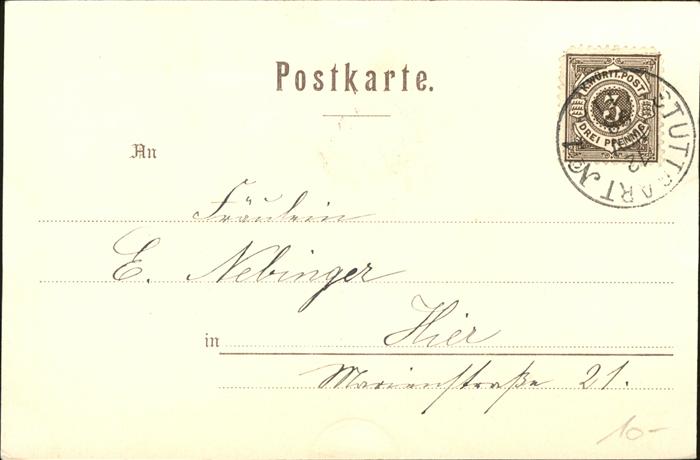 Postkarte.
K. WÜRTT. POST
3
DREI PFENNIG
STUTTGART No 1
An
Fräulein
E. Nebinger
in Hier
Marienstraße 21.
10-